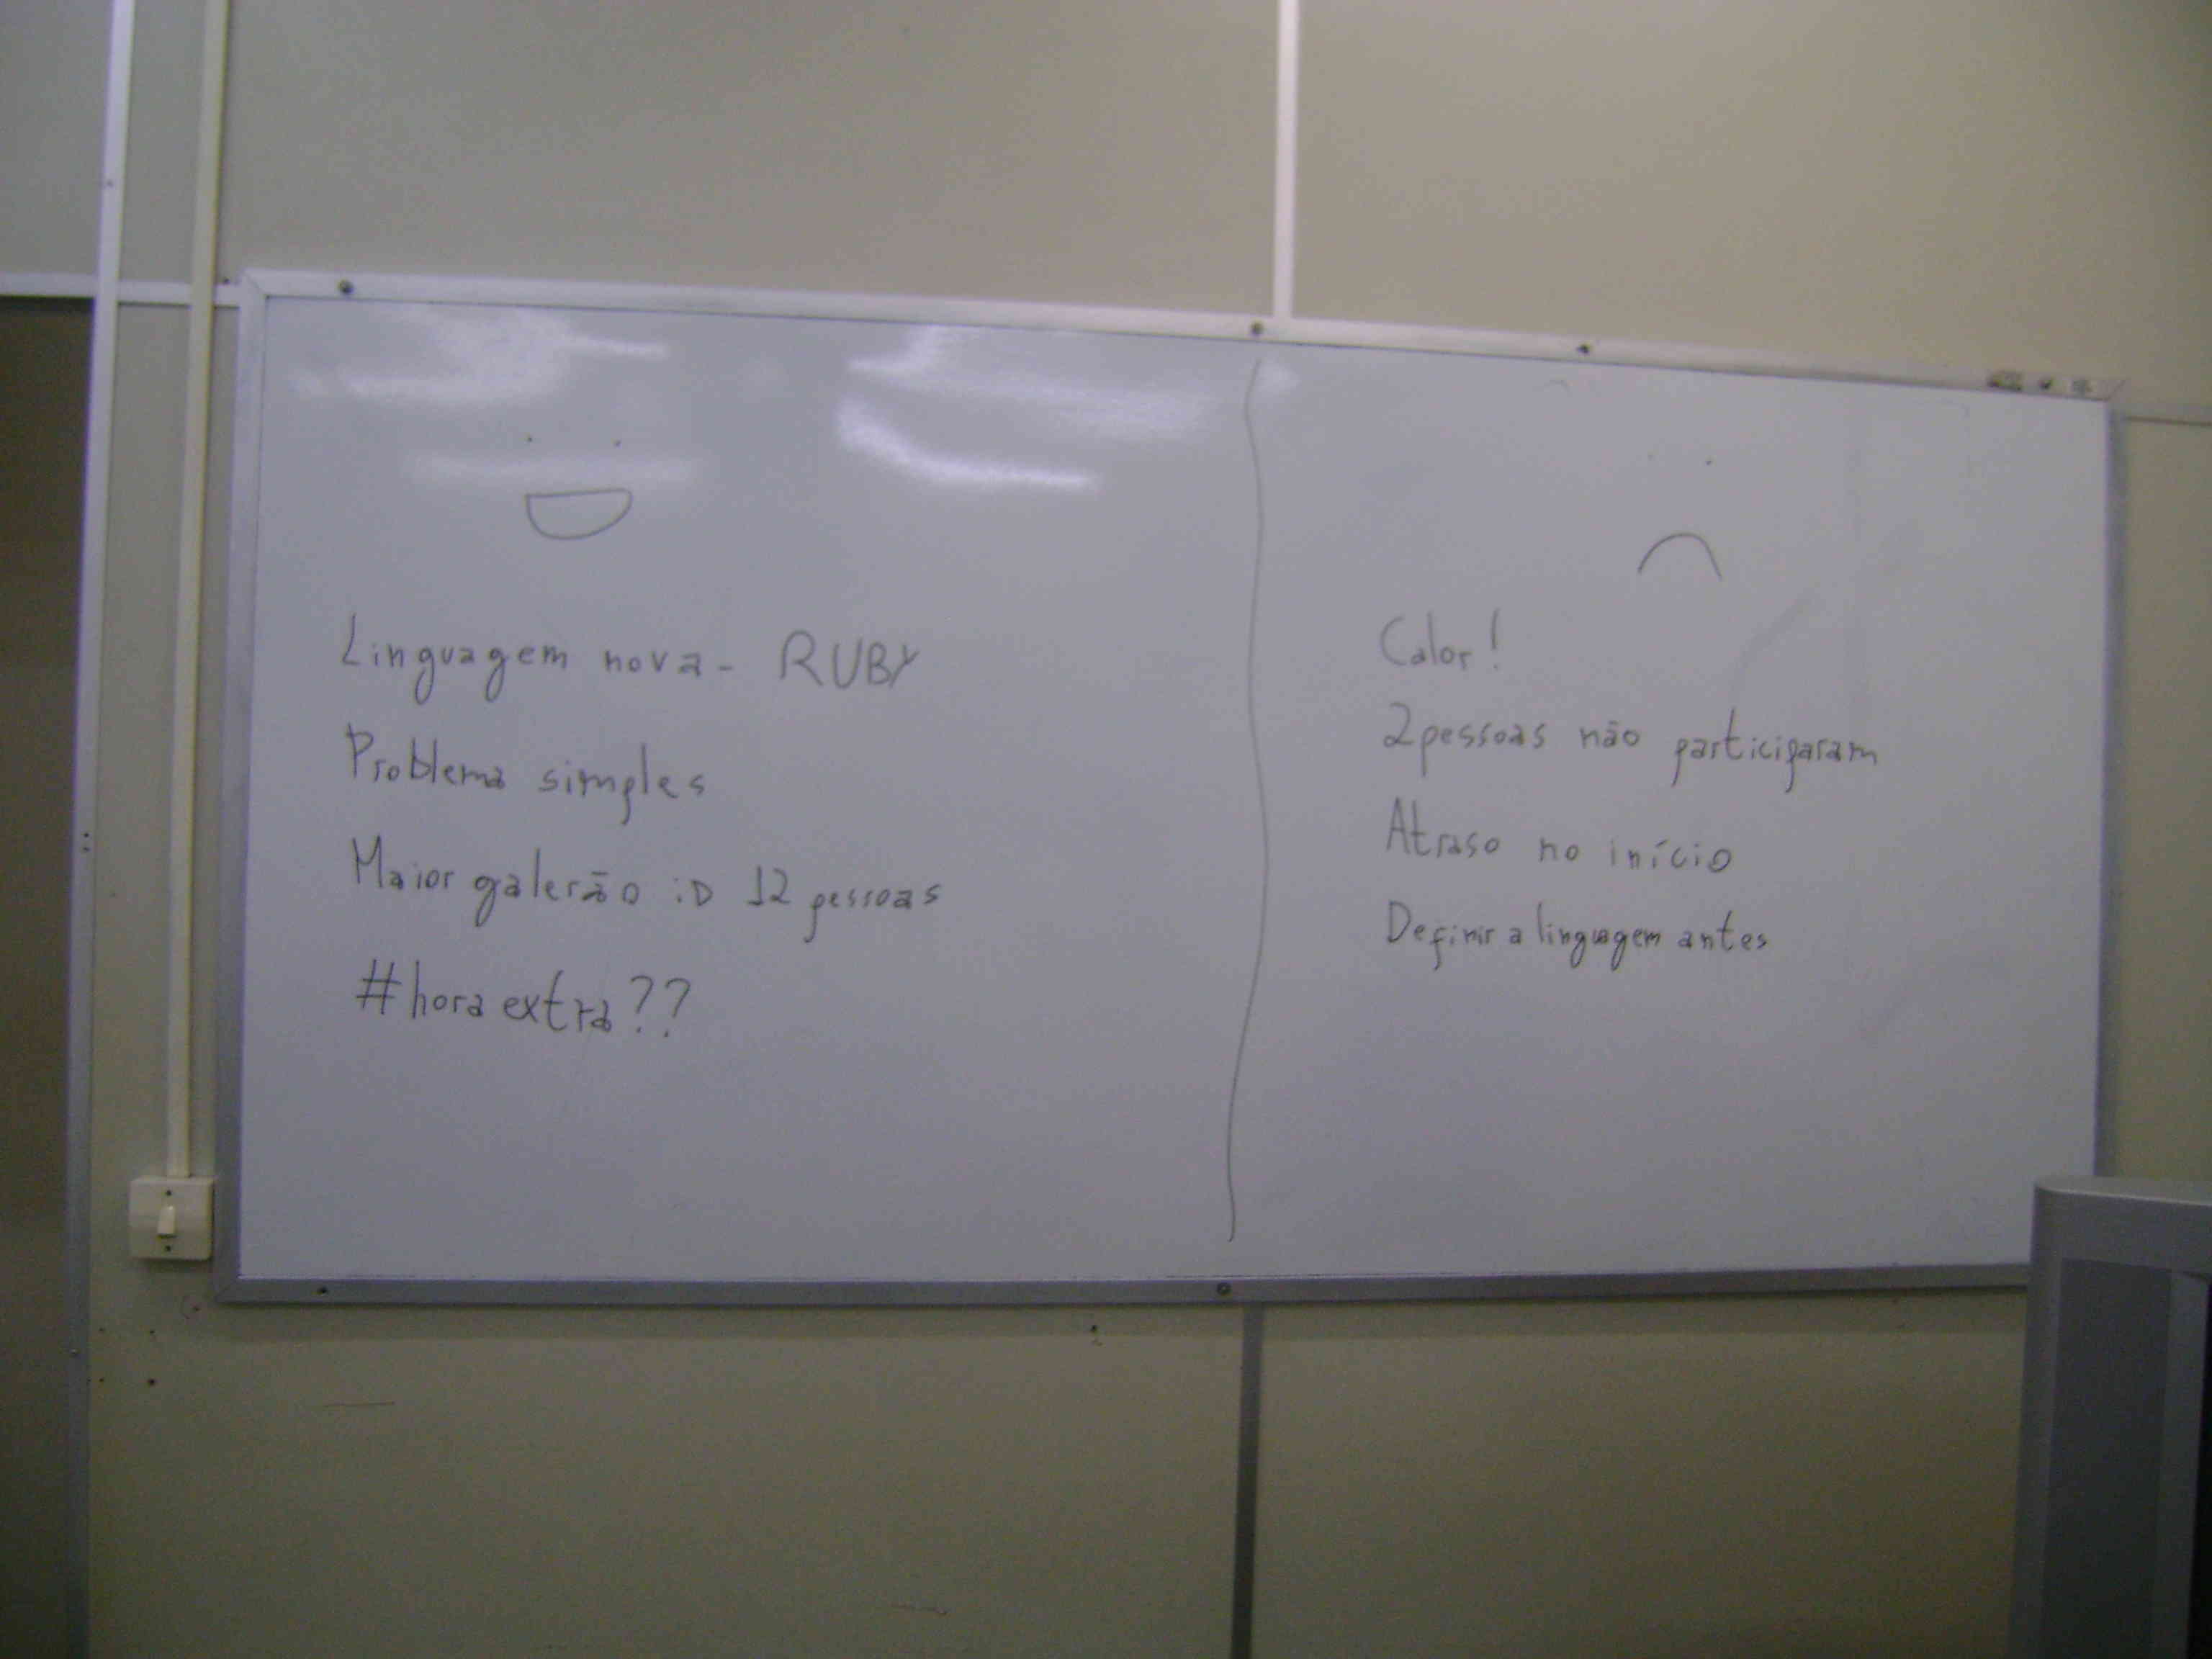 Linguagem nova - RUBY
Problema simples
Maior galerão :D 12 pessoas
#hora extra??
Calor!
2 pessoas não participaram
Atraso no início
Definir a linguagem antes